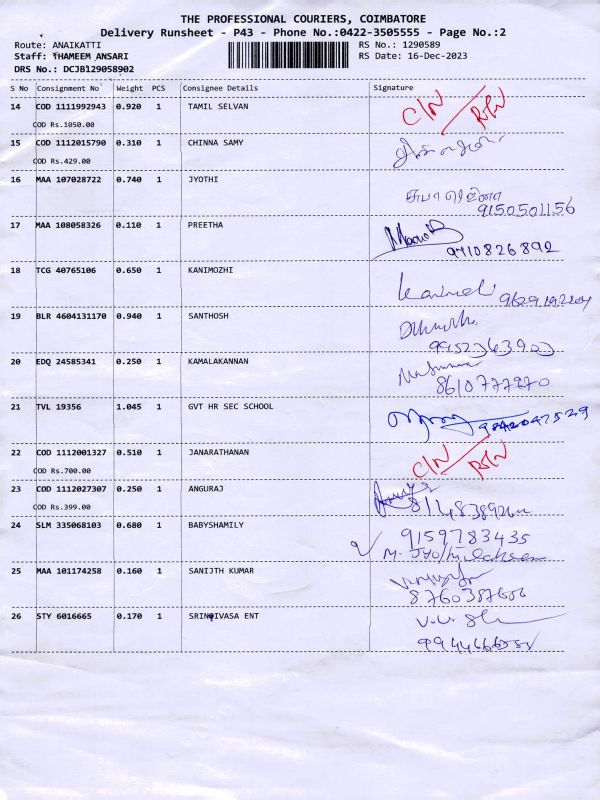 THE PROFESSIONAL COURIERS, COIMBATORE
Delivery Runsheet - P43 - Phone No.:0422-3505555 - Page No.:2
Route: ANAIKATTI RS No.: 1290589
Staff: THAMEEM ANSARI RS Date: 16-Dec-2023
DRS No.: DCJB129058902
S No Consignment No Weight PCS Consignee Details Signature
14 COD 1111992943 0.920 1 TAMIL SELVAN C/N RTN
COD Rs.1050.00
15 COD 1112015790 0.310 1 CHINNA SAMY
COD Rs.429.00
16 MAA 107028722 0.740 1 JYOTHI
9150501156
17 MAA 108058326 0.110 1 PREETHA
9710826892
18 TCG 40765106 0.650 1 KANIMOZHI
19 BLR 4604131170 0.940 1 SANTHOSH
20 EDQ 24585341 0.250 1 KAMALAKANNAN
21 TVL 19356 1.045 1 GVT HR SEC SCHOOL
22 COD 1112001327 0.510 1 JANARATHANAN C/N RTN
COD Rs.700.00
23 COD 1112027307 0.250 1 ANGURAJ
COD Rs.399.00
24 SLM 335068103 0.680 1 BABYSHAMILY 9159783435
25 MAA 101174258 0.160 1 SANIJTH KUMAR
26 STY 6016665 0.170 1 SRINIVASA ENT